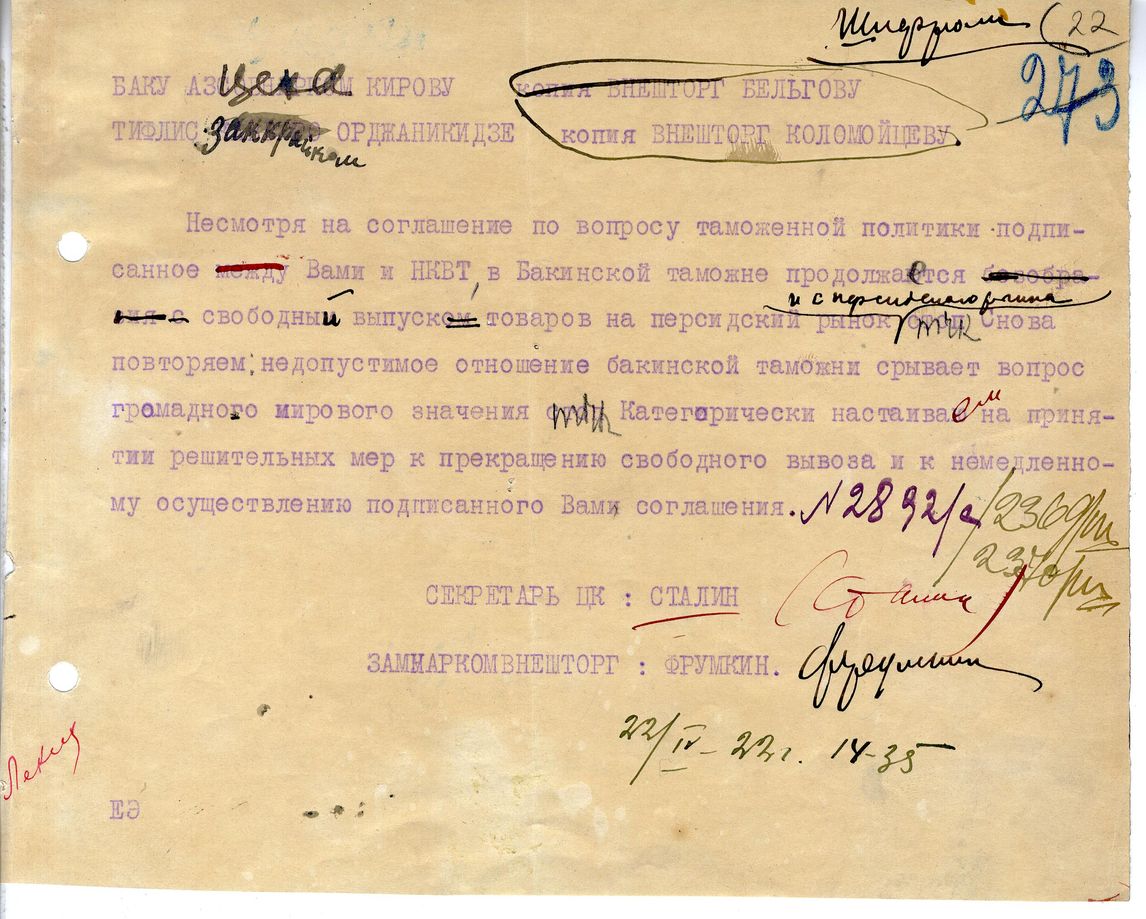 Шифром (22
273
цека
БАКУ КИРОВУ копия ВНЕШТОРГ БЕЛЬГОВУ
заккрайком
ТИФЛИС ОРДЖАНИКИДЗЕ копия ВНЕШТОРГ КОЛОМОЙЦЕВУ
Несмотря на соглашение по вопросу таможенной политики подпи-
санное между Вами и НКВТ, в Бакинской таможне продолжается безобра-
и с персидского рынка
зия с свободный выпуском товаров на персидский рынок тчк Снова
повторяем, недопустимое отношение бакинской таможни срывает вопрос
громадного мирового значения тчк Категорически настаиваем на приня-
тии решительных мер к прекращению свободного вывоза и к немедленно-
му осуществлению подписанного Вами соглашения. N2892/с /2369/ш
2370/ш
СЕКРЕТАРЬ ЦК : СТАЛИН (Сталин)
ЗАМНАРКОМВНЕШТОРГ : ФРУМКИН. Фрумкин
22/IV-22г. 14-35
Ленин
ЕЭ